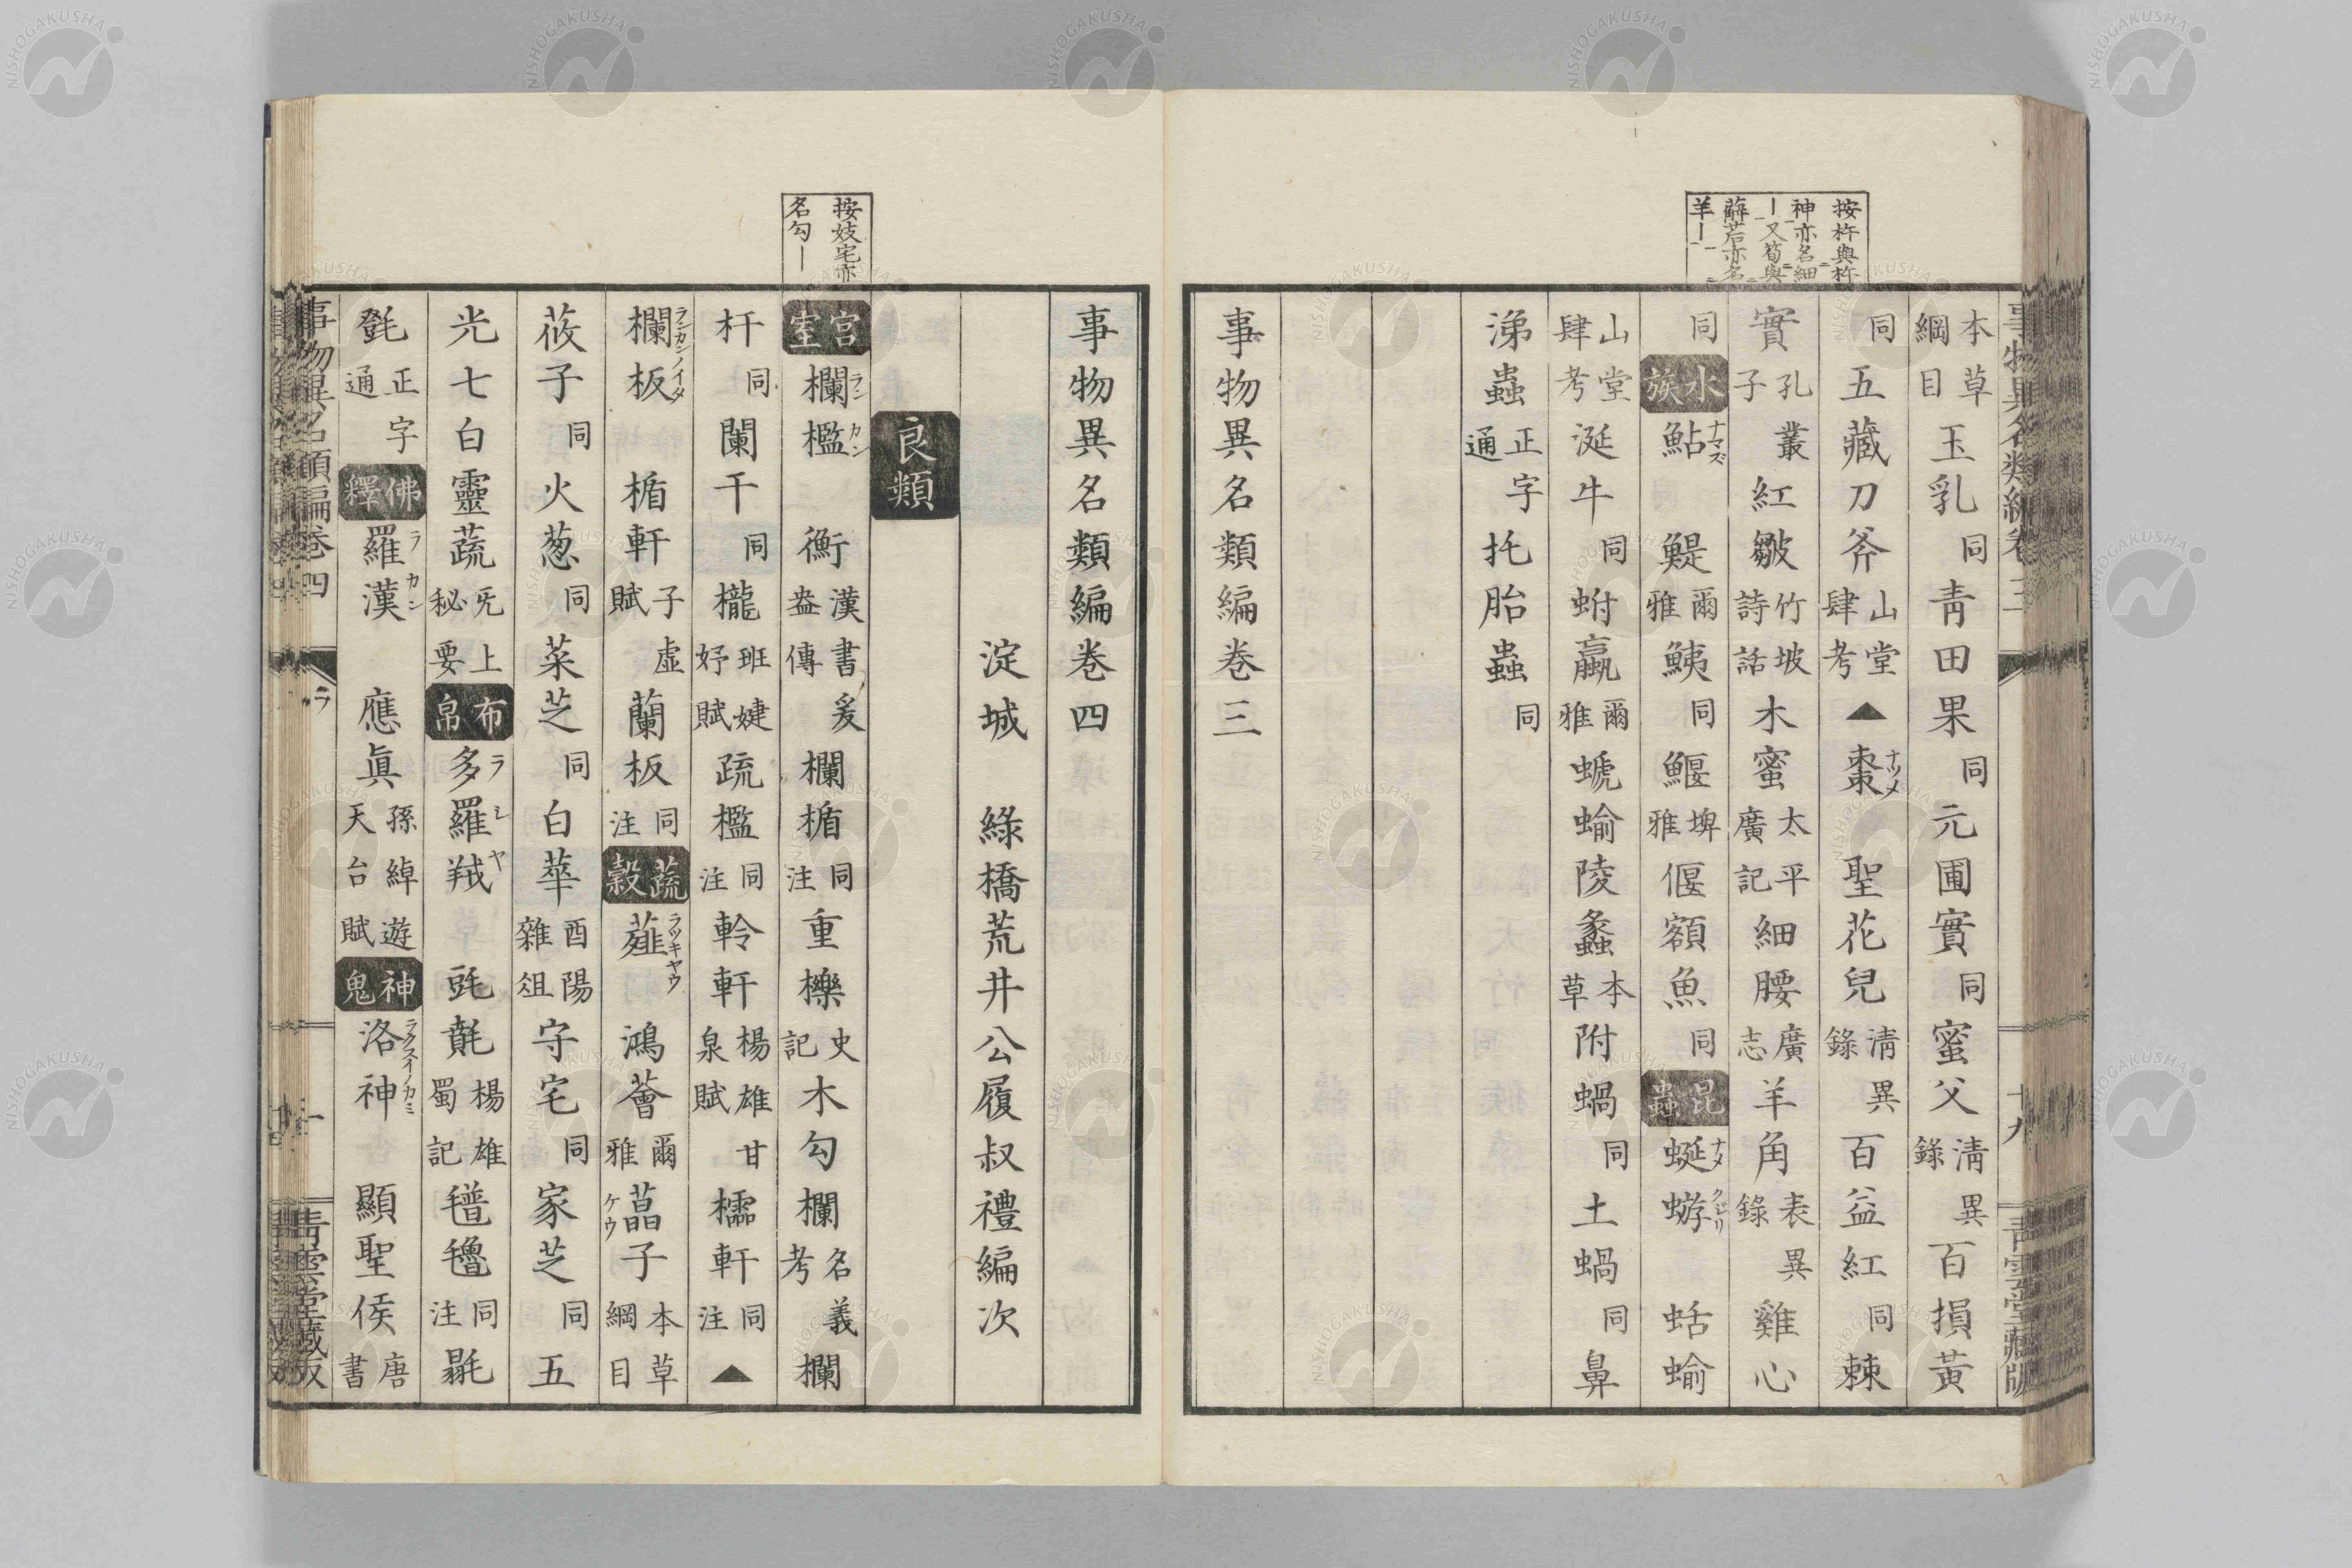 按杵與杵
神亦名細
｜又筍與
薜若亦名
羊｜
本草綱目玉乳同青田果同元圃實同蜜父清異錄百損黃
同五藏刀斧山堂肆考▲棗ナツメ聖花兒清異錄百益紅同棘
實孔叢子紅皺竹坡詩話木蜜太平廣記細腰廣志羊角表異錄雞心
同水族鮎ナマズ鯷爾雅鮧同鰋埤雅偃額魚同昆蟲蜒蝣ナメクジリ蛞蝓
山堂肆考涎牛同蚹蠃爾雅螔蝓陵蠡本草附蝸同土蝸同鼻
涕蟲正字通托胎蟲同
事物異名類編卷三
事物異名類編卷三
十九
青雲堂藏版
按妓宅亦
名勾｜
事物異名類編卷四
淀城 綠橋荒井公履叔禮編次
良類
宮室欄檻ランカン衡漢書爰盎傳欄楯同注重櫟史記木勾欄名義考欄
杆同闌干同櫳班婕妤賦疏檻同注軨軒楊雄甘泉賦櫺軒同注▲
欄板ランカンノイタ楯軒子虛賦蘭板同注蔬穀薤ラツキヤウ鴻薈爾雅藠ケウ子本草綱目
莜子同火葱同菜芝同白華酉陽雜俎守宅同家芝同五
光七白靈蔬旡上秘要布帛多羅羢ラシヤ㲄㲕楊雄蜀記氆氌同注毾
㲪正字通佛釋羅漢ラカン應眞孫綽遊天台賦神鬼洛神ラクスイノカミ顯聖侯唐書
事物異名類編卷四
ラ
一
青雲堂藏版